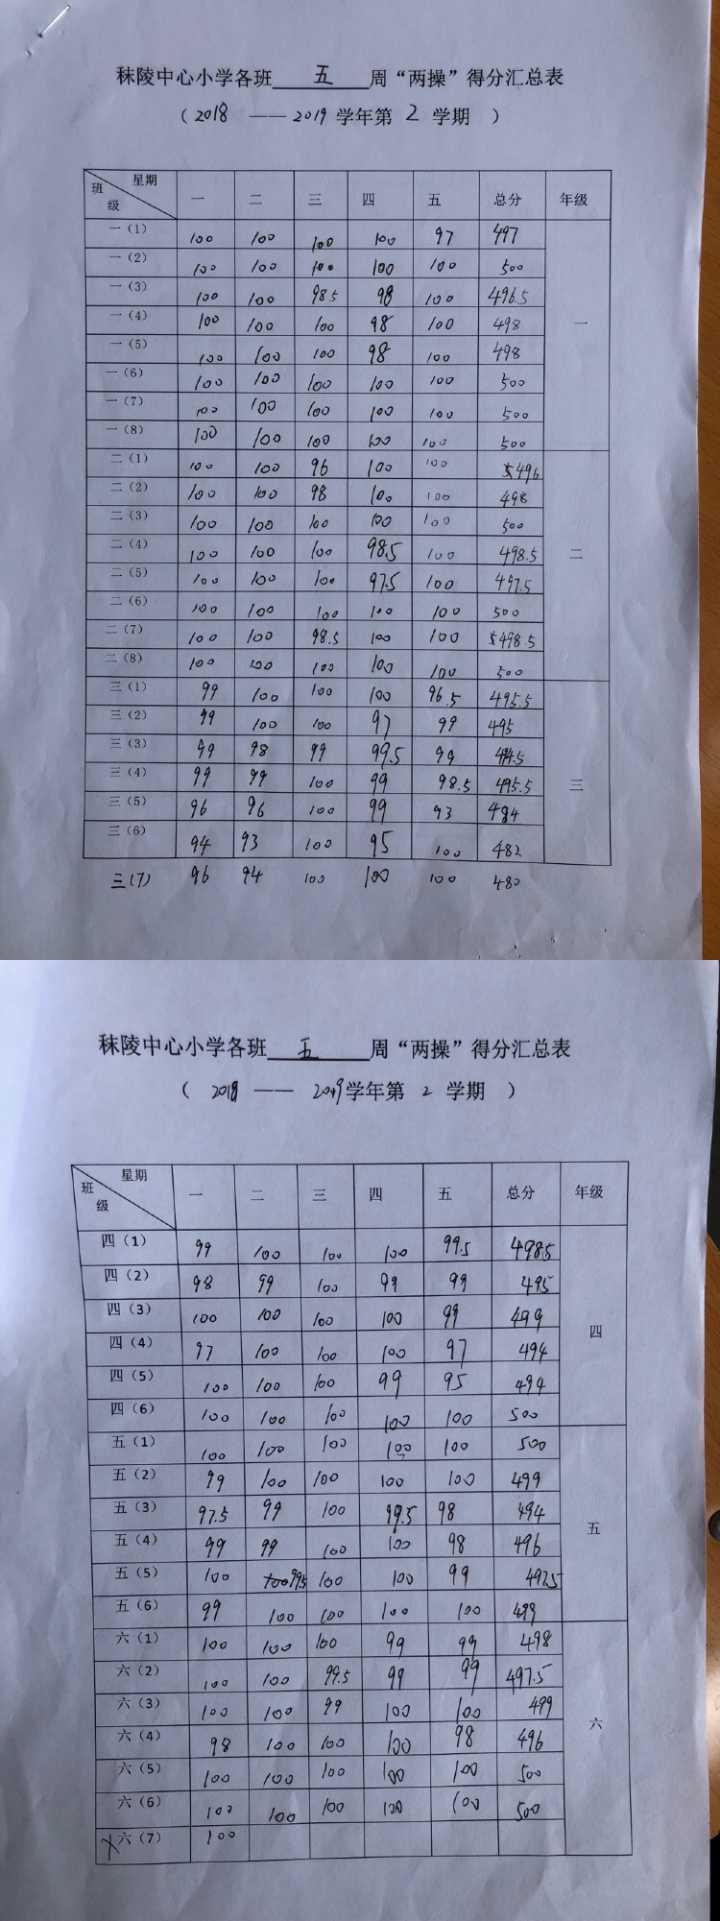 秣陵中心小学各班 五 周“两操”得分汇总表
（ 2018 —— 2019 学年第 2 学期 ）
班级 星期 一 二 三 四 五 总分 年级
一（1） 100 100 100 100 97 497
一（2） 100 100 100 100 100 500
一（3） 100 100 98.5 98 100 496.5
一（4） 100 100 100 98 100 498 一
一（5） 100 100 100 98 100 498
一（6） 100 100 100 100 100 500
一（7） 100 100 100 100 100 500
一（8） 100 100 100 100 100 500
二（1） 100 100 96 100 100 496
二（2） 100 100 98 100 100 498
二（3） 100 100 100 100 100 500
二（4） 100 100 100 98.5 100 498.5 二
二（5） 100 100 100 97.5 100 497.5
二（6） 100 100 100 100 100 500
二（7） 100 100 98.5 100 100 498.5
二（8） 100 100 100 100 100 500
三（1） 99 100 100 100 96.5 495.5
三（2） 99 100 100 97 99 495
三（3） 99 98 99 99.5 99
三（4） 99 99 100 99 98.5 495.5 三
三（5） 96 96 100 99 93 484
三（6） 94 93 100 95 100 482
三(7) 96 94 100 100 100 480
秣陵中心小学各班 五 周“两操”得分汇总表
（ 2018 —— 2019 学年第 2 学期 ）
班级 星期 一 二 三 四 五 总分 年级
四（1） 99 100 100 100 99.5 498.5
四（2） 98 99 100 99 99 495
四（3） 100 100 100 100 99 499
四（4） 97 100 100 100 97 494 四
四（5） 100 100 100 99 95 494
四（6） 100 100 100 100 100 500
五（1） 100 100 100 100 100 500
五（2） 99 100 100 100 100 499
五（3） 97.5 99 100 99.5 98 494 五
五（4） 99 99 100 100 98 496
五（5） 100 100 99.5 100 100 99
五（6） 99 100 100 100 100 499
六（1） 100 100 100 99 99 498
六（2） 100 100 99.5 99 99 497.5
六（3） 100 100 99 100 100 499
六（4） 98 100 100 100 98 496 六
六（5） 100 100 100 100 100 500
六（6） 100 100 100 100 100 500
六（7） 100